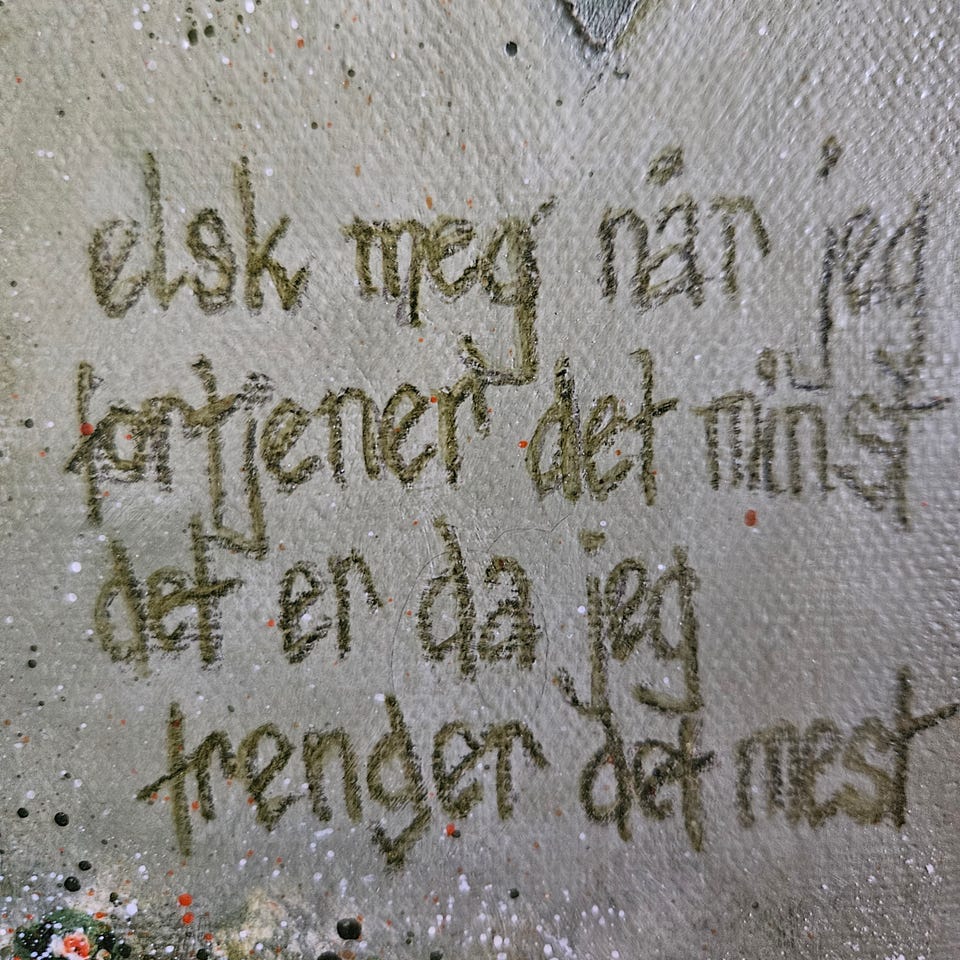 elsk meg når jeg
fortjener det minst
det er da jeg
trenger det mest